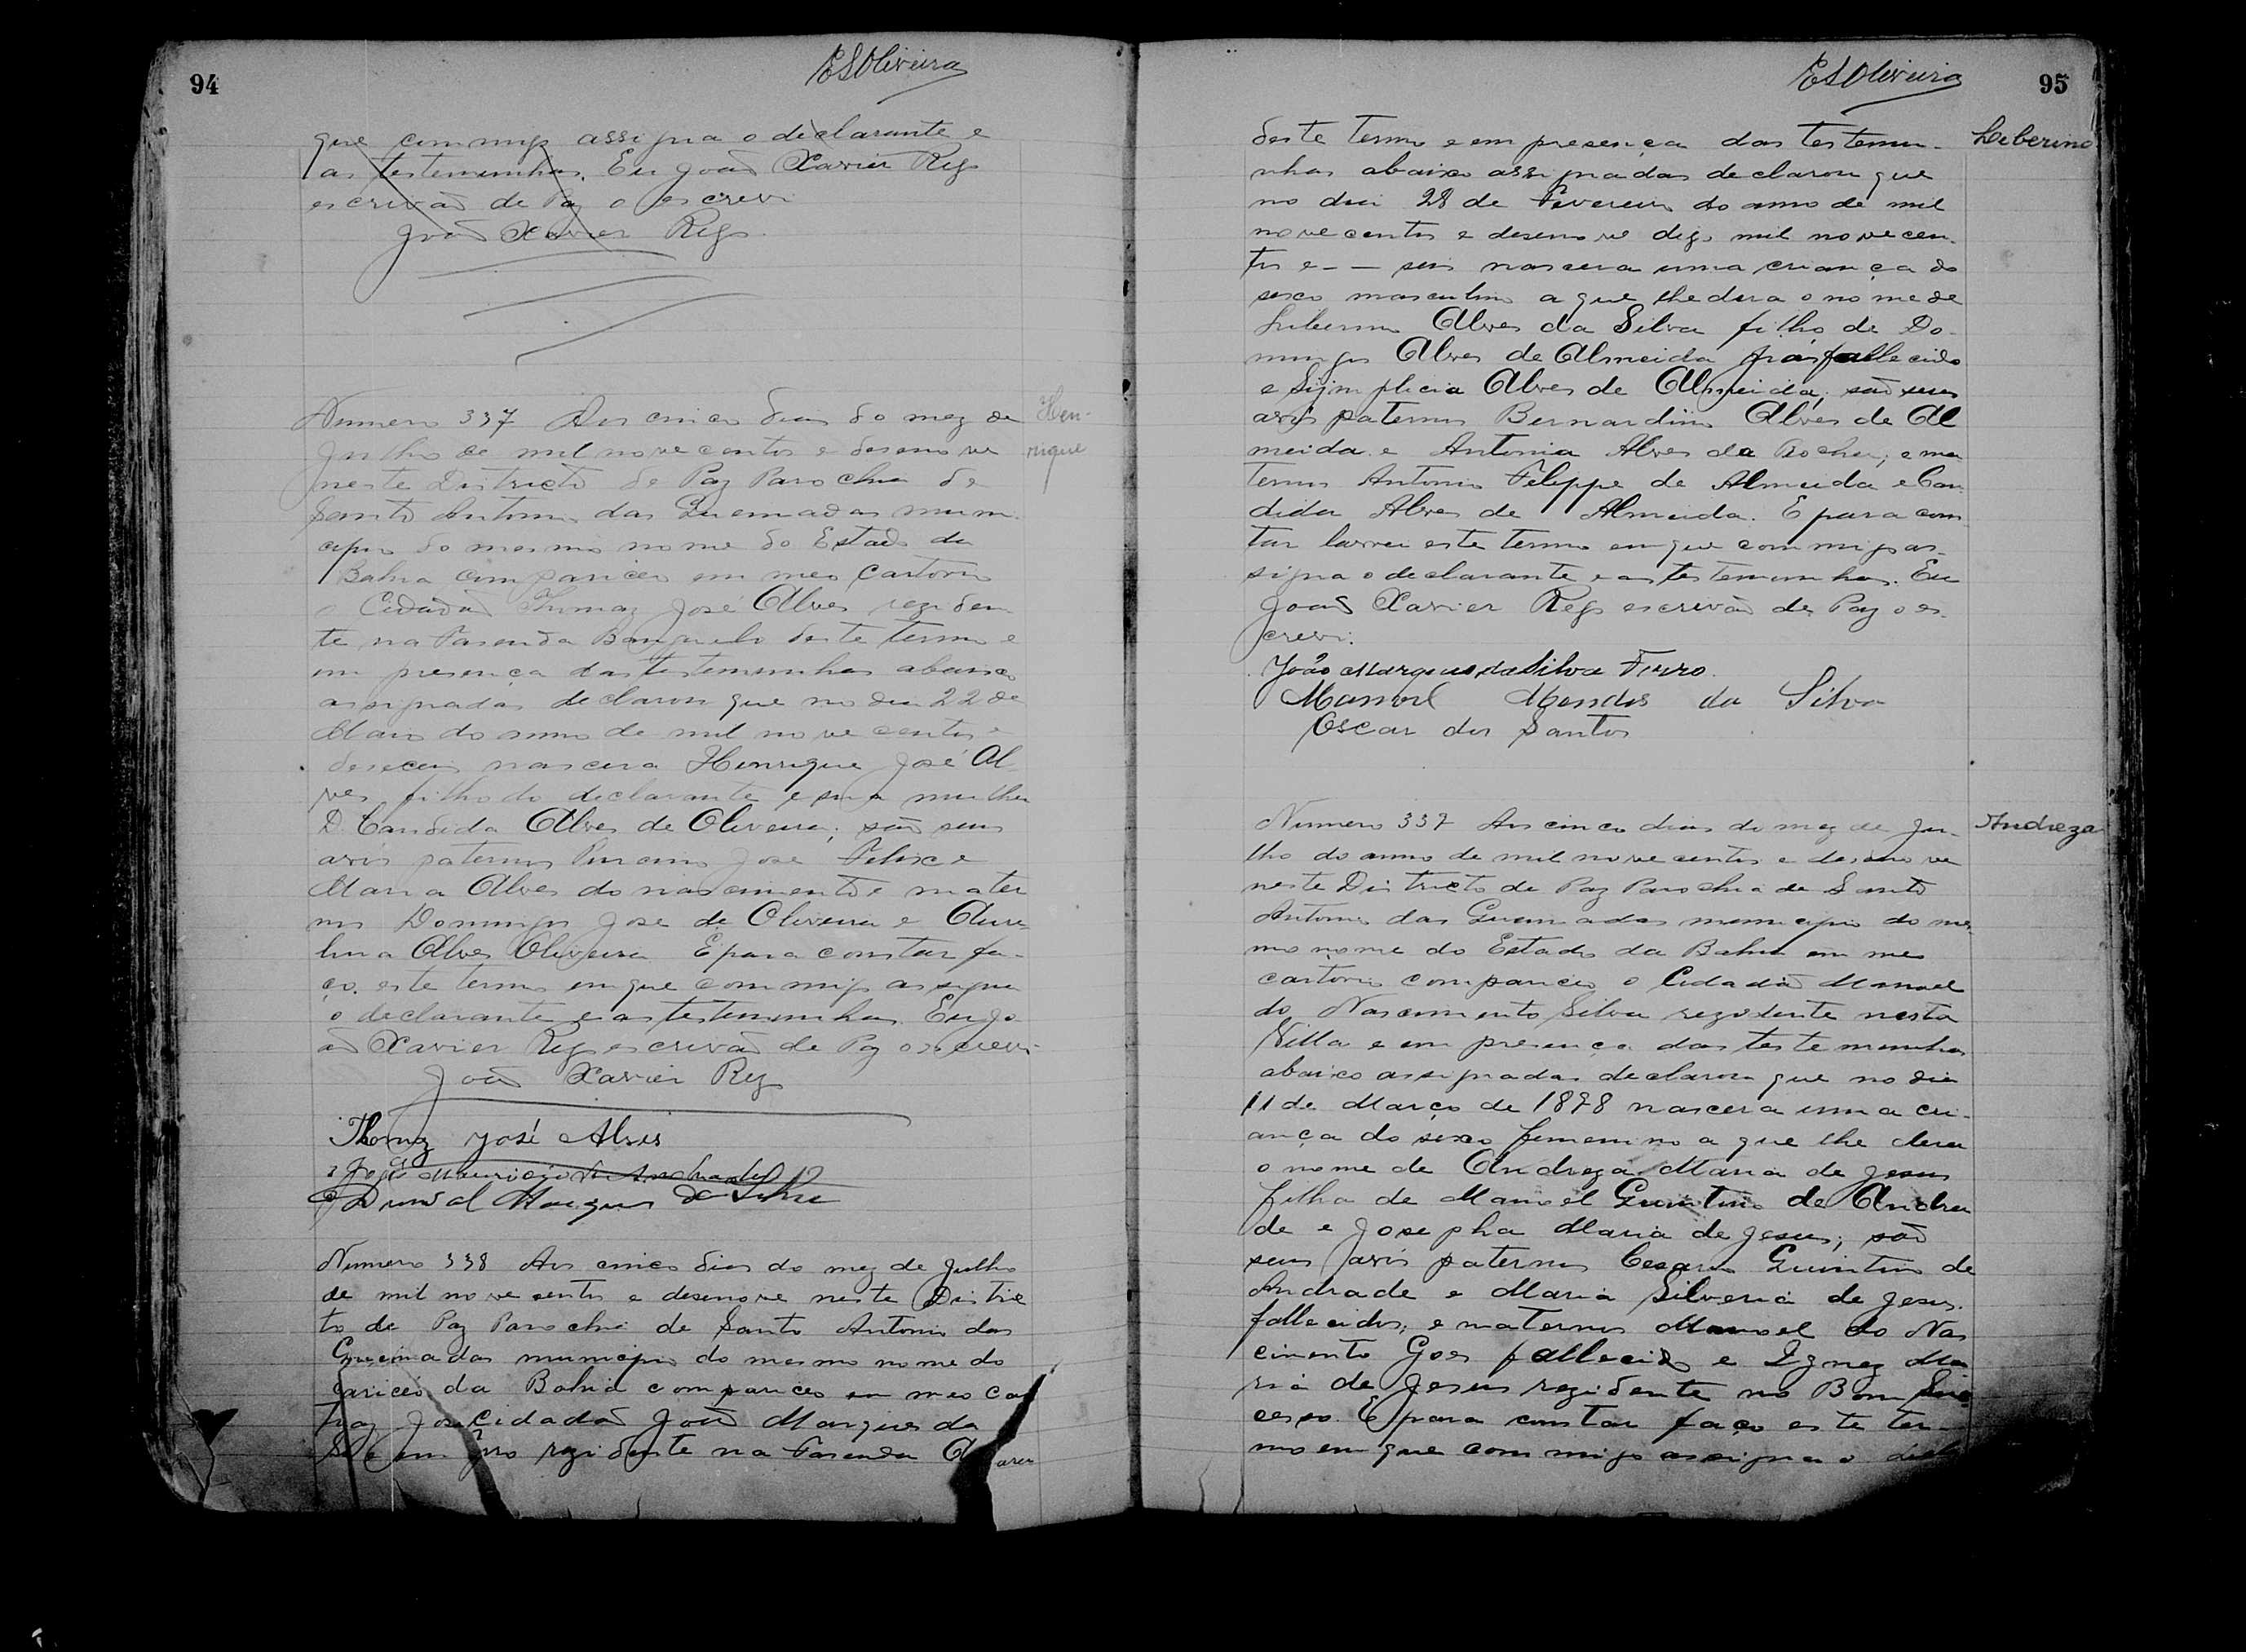 94
ESOliveira
que commigo assigna o declarante e
as testemunhas. Eu João Xavier Rego
escrivão de Paz o escrevi
João Xavier Rego.
Numero 337 Aos cinco dias do mez de
Hen-
rique
Julho de mil nove centos e desenove
neste Districto de Paz Parochia de
Santo Antonio das Queimadas muni-
cipio do mesmo nome do Estado da
Bahia compareceu em meo Cartorio
o Cidadão Thomaz José Alves reziden-
te na Fasenda deste termo e
em presença das testemunhas abaixo
assignadas declarou que no dia 22 de
Maio do anno de mil nove centos e
deseceis nascera Henrique José Al-
ves filho do declarante e sua mulher
D. Candida Alves de Oliveira; são seus
avós paternos José Felix e
Maria Alves do nascimento e mater
nos Domingos José de Oliveira e Aure
lina Alves Oliveira E para constar fa-
ço este termo em que commigo assigna
o declarante e as testemunhas. Eu Jo-
ão Xavier Rego escrivão de Paz o escrevi
João Xavier Rego
Thomz José Alves
João Mauricio de Andrade
Marques da Silva
Numero 338 Aos cinco dias do mez de Julho
de mil nove sentos e desenove neste Distric
to de Paz Parochia de Santo Antonio das
Queimadas municipio do mesmo nome do
da Bahia compareceo em meo Car
Cidadão João Marques da
rezidente na Fasenda
95
ESOliveira
deste termo e em presença das testemu-
Liberino
nhas abaixo assignadas declarou que
no dia 28 de Fevereiro do anno de mil
nove centos e desenove digo mil nove cen-
tos e - - seis nascera uma criança do
sexo masculino a que lhe dera o nome de
Liberino Alves da Silva filho de Do-
mingos Alves de Almeida já fallecido
e Simplicia Alves de Almeida; são seus
avós paternos Bernardino Alves de Al
meida e Antonia Alves da Rocha; e ma
ternos Antonio Felippe de Almeida e Can
dida Alves de Almeida. E para cons
tar lavrei este termo em que commigo as-
signa o declarante e as testemunhas. Eu
João Xavier Rego escrivão de Paz o es-
crevi.
João Marques da Silva Ferro.
Manoel Mendes da Silva
Oscar dos Santos
Numero 339 Aos cinco dias do mez de Ju-
Andreza
lho do anno de mil nove centos e desenove
neste Districto de Paz Parochia de Santo
Antonio das Queimadas municipio do mes
mo nome do Estado da Bahia em meo
cartorio compareceo o Cidadão Manoel
do Nascimento Silva rezidente nesta
Villa e em presença das testemunhas
abaixo assignadas declarou que no dia
11 de Março de 1898 nascera uma cri-
ança do sexo femenino a que lhe dera
o nome de Andreza Maria de Jesus
filha de Manoel Quintino de Andra
de e Josepha Maria de Jesus; são
seus avós paternos Cesario Quintino de
Andrade e Maria Silveria de Jesus.
fallecidos; e maternos Manoel do Nas
cimento Goes fallecido e Ignez Ma
ria de Jesus rezidente no Bom Suc
cesso. E para constar faço este ter-
mo em que commigo assigna o